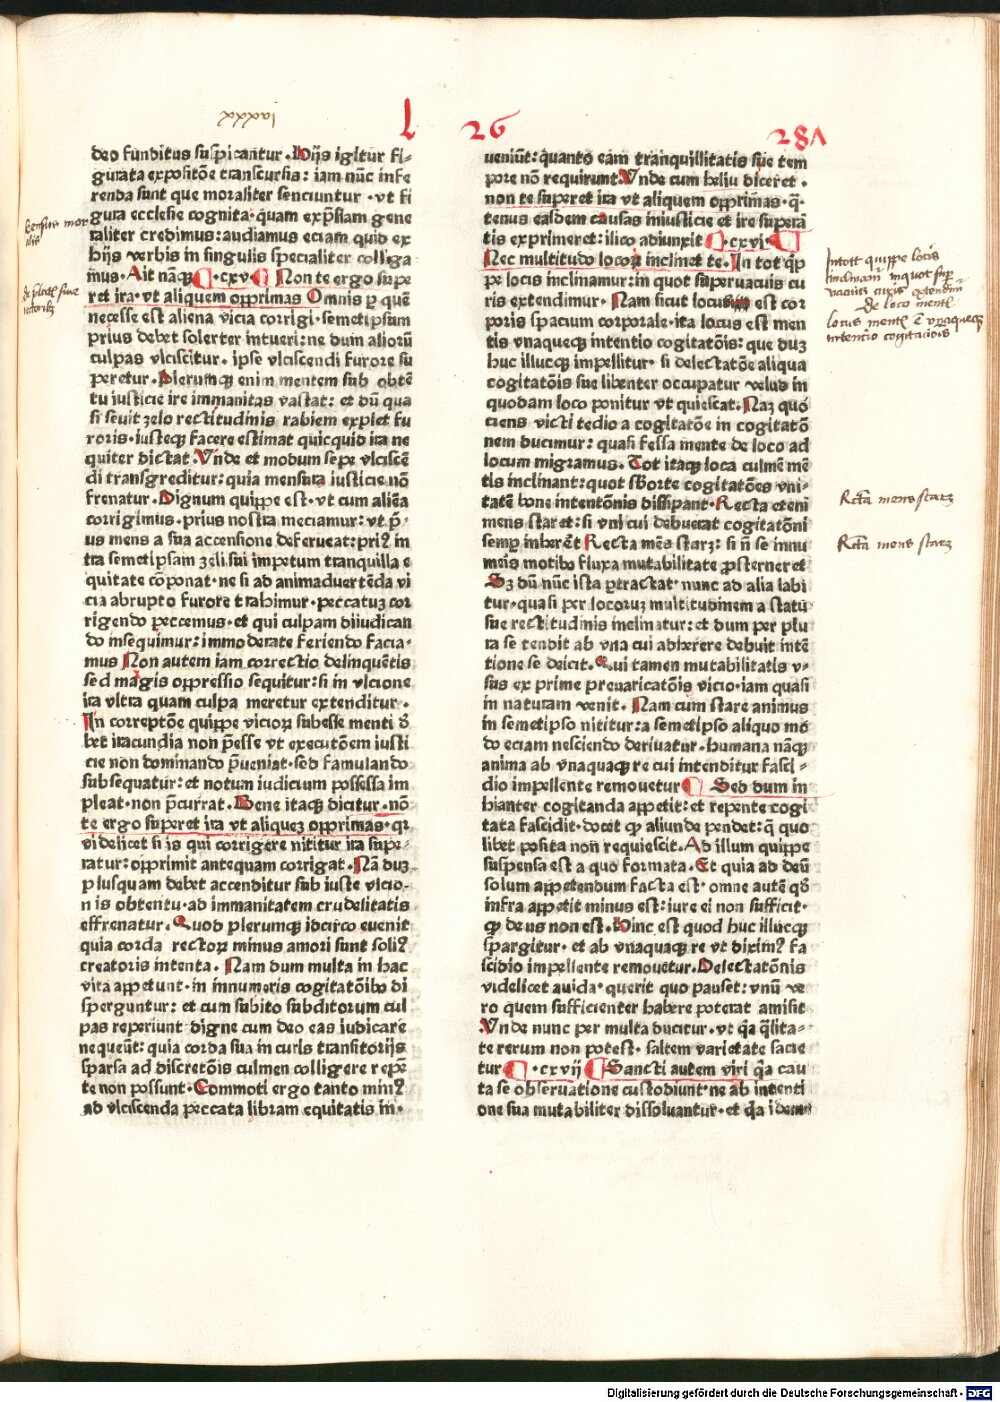 L 26 281
deo funditus suspicantur. Hijs igitur fi-
gurata expositõe transcursis: iam nũc infe
renda sunt que moraliter senciuntur. vt fi
gura ecclesie cognita. quam exp̃ssam gene
raliter credimus: audiamus eciam quid ex
hijs verbis in singulis specialiter colliga
mus. Ait nãqꝫ ¶ .cxv. ¶ Non te ergo supe
ret ira. vt aliquem opprimas Omnis ꝑ quẽ
necesse est aliena vicia corrigi. semetipsum
prius debet solerter intueri: ne dum alioꝝ
culpas vlciscitur. ipse vlciscendi furore su
peretur. Plerumqꝫ enim mentem sub obtẽ
tu iusticie ire immanitas vastat: et dũ qua
si seuit zelo rectitudinis rabiem explet fu
roris. iusteqꝫ facere estimat quicquid ira ne
quiter dictat. Vnde et modum sepe vlciscẽ
di transgreditur: quia mensura iusticie nõ
frenatur. Dignum quippe est. vt cum aliẽa
corrigimus. prius nostra meciamur: vt p̃-
us mens a sua accensione deferueat: priꝰ in
tra semetipsam zeli sui impetum tranquilla e
quitate cõponat. ne si ad animaduertẽda vi
cia abrupto furore trahimur. peccatuꝫ cor
rigendo peccemus. et qui culpam diiudican
do insequimur: immoderate feriendo facia-
mus Non autem iam correctio delinquẽtis
sed magis oppressio sequitur: si in vlcione
ira vltra quam culpa meretur extenditur.
In correptõe quippe vicioꝝ subesse menti đ
bet iracundia non p̃esse vt executõem iusti
cie non dominando p̃ueniat. sed famulando
subsequatur: et notum iudicium possessa im
pleat. non p̃currat. Bene itaqꝫ dicitur. nõ
te ergo superet ira vt aliqueꝫ opprimas. qꝛ
videlicet si is qui corrigere nititur ira supe-
ratur: opprimit antequam corrigat. Nã duꝫ
plusquam debet accenditur sub iuste vlcio-
nis obtentu. ad immanitatem crudelitatis
effrenatur. Quod plerumqꝫ idcirco euenit
quia corda rectoꝝ minus amori sunt soliꝰ
creatoris intenta. Nam dum multa in hac
vita appetunt. in innumeris cogitatõibꝰ di
sperguntur: et cum subito subditorum cul
pas reperiunt digne cum deo eas iudicare
nequeũt: quia corda sua in curis transitorijs
sparsa ad discretõis culmen colligere repẽ
te non possunt. Commoti ergo tanto minꝰ
ad vlciscenda peccata libram equitatis in-
ueniũt: quanto eam tranquillitatis sue tem
pore nõ requirunt. Vnde cum heliu diceret.
non te superet ira vt aliquem opprimas. q̃-
tenus easdem causas iniusticie et ire superã
tis exprimeret: ilico adiunxit ¶ .cxvi. ¶
Nec multitudo locoꝝ inclinet te. In tot q̃p
pe locis inclinamur: in quot superuacuis cu
ris extendimur. Nam sicut locus est cor
poris spacium corporale. ita locus est men
tis vnaqueqꝫ intentio cogitatõis: que duꝫ
huc illucqꝫ impellitur. si delectatõe aliqua
cogitatõis sue libenter occupatur velud in
quodam loco ponitur vt quiescat. Naꝫ quo
ciens victi tedio a cogitatõe in cogitatõ
nem ducimur: quasi fessa mente de loco ad
locum migramus. Tot itaqꝫ loca culmẽ mẽ
tis inclinant: quot sborte cogitatões vni-
tatẽ bone intentõnis dissipant. Recta eteni
mens staret: si vni cui debuerat cogitatõni
semꝑ inherẽt Recta mẽs staꝛꝫ: si ñ se innu
meris motibꝰ fluxa mutabilitate ꝓsterneret
Sꝫ dũ nũc ista ꝑtractat. nunc ad alia labi
tur. quasi per locoruꝫ multitudinem a statu
sue rectitudinis inclinatur: et dum per plu
ra se tendit ab vna cui adherere debuit intẽ
tione se deicit. Qui tamen mutabilitatis v-
sus ex prime preuaricatõis vicio. iam quasi
in naturam venit. Nam cum stare animus
in semetipso nititur: a semetipso aliquo mo
do eciam nesciendo deriuatur. humana nãqꝫ
anima ab vnaquaqꝫ re cui intenditur fasci-
dio impellente remouetur ¶ Sed dum in
hianter cogitanda appetit: et repente cogi
tata fascidit. docet ꝙ aliunde pendet: q̃ quo
libet posita non requiescit. Ad illum quippe
suspensa est a quo formata. Et quia ad deũ
solum appetendum facta est. omne autẽ qđ
infra appetit minus est: iure ei non sufficit.
ꝙ deus non est. Hinc est quod huc illucqꝫ
spargitur. et ab vnaquaqꝫ re vt diximꝰ fa
scidio impellente remouetur. Delectatõnis
videlicet auida. querit quo pauset: vnũ ve
ro quem sufficienter habere poterat amisit
Vnde nunc per multa ducitur. vt q̃a q̃lita-
te rerum non potest. saltem varietate sacie
tur ¶ .cxvij ¶ Sancti autem viri q̃a cau
ta se obseruatione custodiunt. ne ab intenti
one sua mutabiliter dissoluantur. et q̃a idem
Intott quippe locis
inclinamur inquot supͥ
vacuis curis extendim
De loco mentis
locus mentis ẽ vnaqueqꝫ
intentio cogitationis
Recta mens staret
Recta mens staret